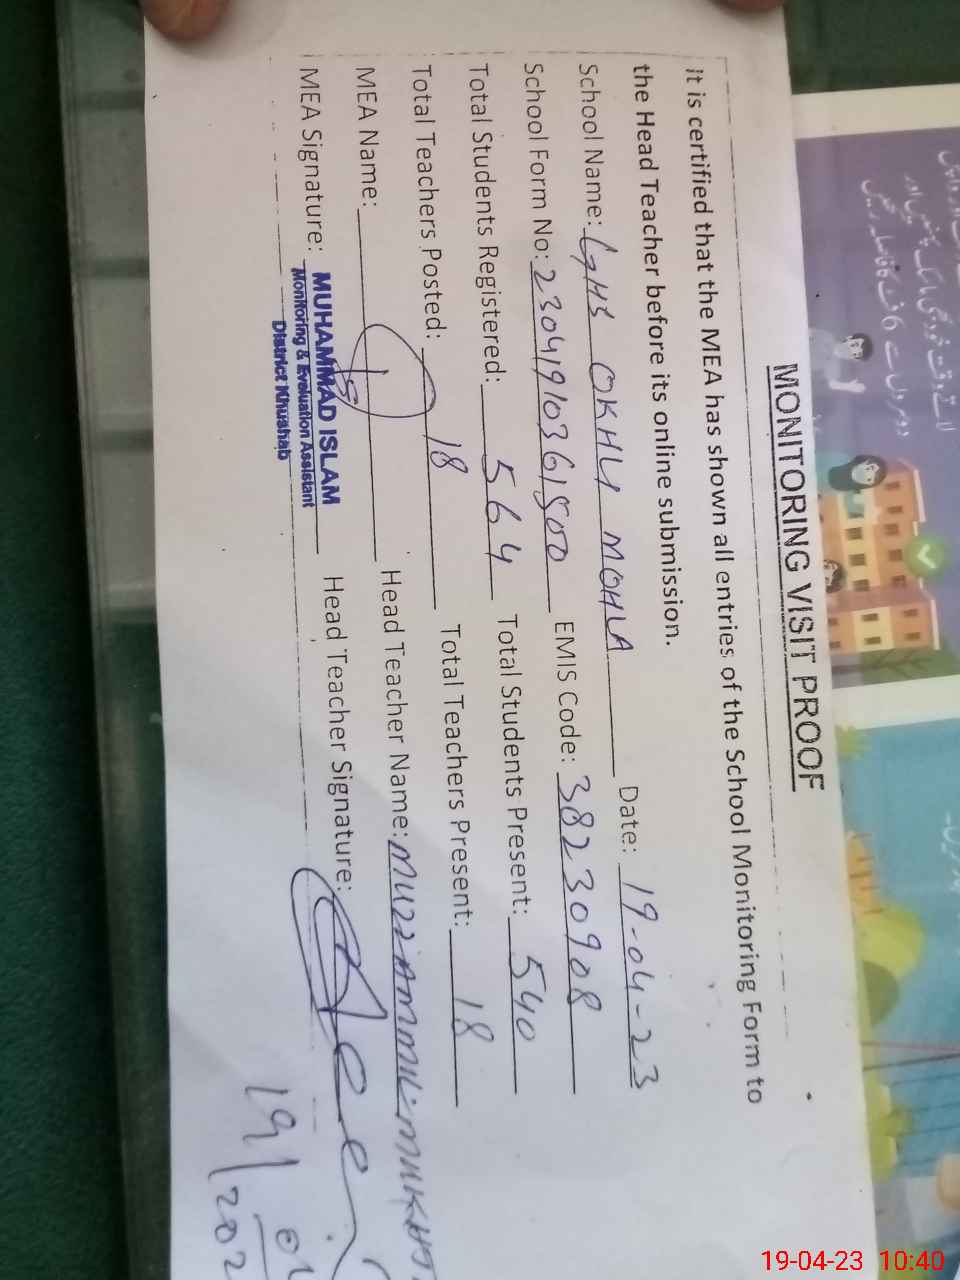 MONITORING VISIT PROOF
it is certified that the MEA has shown all entries of the School Monitoring Form to
the Head Teacher before its online submission.
School Name: GHS OKHLI MOHLA Date: 19-04-23
School Form No: 23041910361500 EMIS Code: 38230908
Total Students Registered: 564 Total Students Present: 540
Total Teachers Posted: 18 Total Teachers Present: 18
MEA Name: Head Teacher Name: MUZZAMMIL
MEA Signature: MUHAMMAD ISLAM Head Teacher Signature:
Monitoring & Evaluation Assistant
District Khushab
19-04-23 10:40